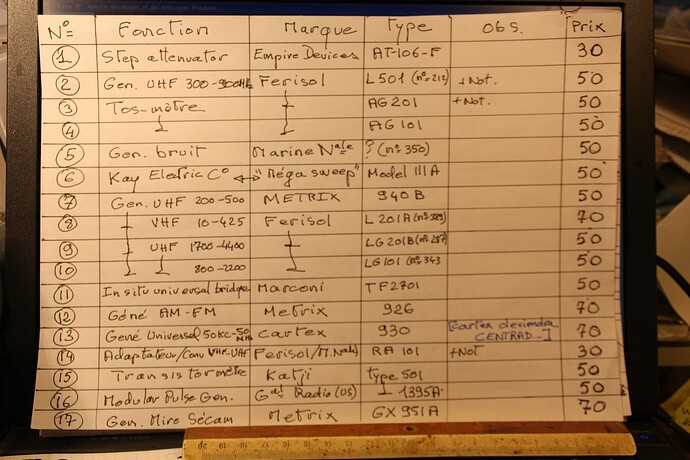 N° Fonction Marque Type Obs. Prix
1 Step attenuator Empire Devices AT-106-F 30
2 Gen. UHF 300-900MHz Ferisol L501 (n°212) + Not. 50
3 Tos-mètre AG201 + Not. 50
4 AG101 50
5 Gen. bruit Marine Nale ? (n° 350) 50
6 Kay Electric C° ↔ "Méga sweep" Model IIIA 50
7 Gen. UHF 200-500 METRIX 940B 50
8 VHF 10-425 Ferisol L201A (n°329) 70
9 UHF 1700-4400 LG201B (n°287) 50
10 800-2200 LG101 (n°343 50
11 In situ universal bridge Marconi TF2701 50
12 Géné AM-FM Metrix 926 70
13 Gené Universel 50Kc-50MHz Cartex 930 [Cartex deviendra CENTRAD...] 70
14 Adaptateur/Conv VHF-UHF Ferisol/M.Nale) RA 101 + Not 30
15 Transistormètre Katji type 501 50
16 Modular Pulse Gen. Gal Radio (US) 1395A 50
17 Gen. Mire Sécam Metrix GX951A 70